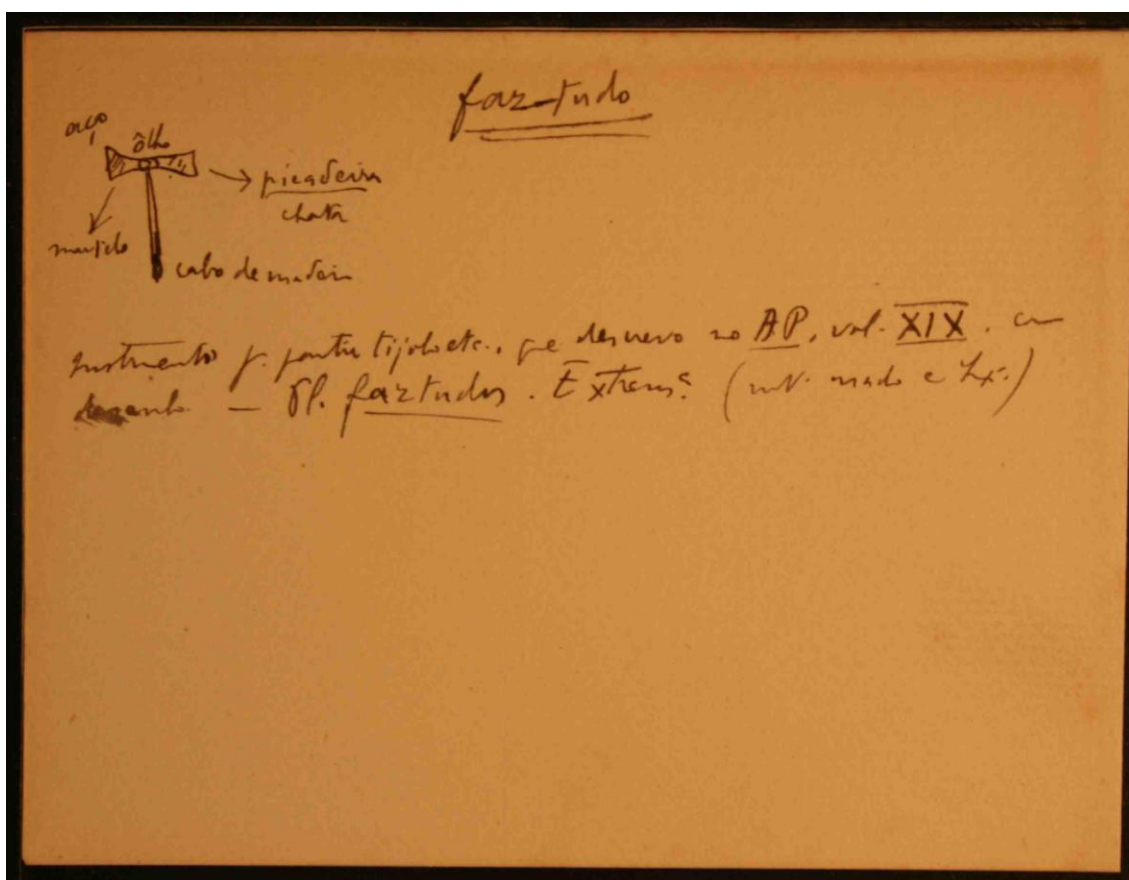 faz-tudo
aço
ôlho
picadeira
chata
martelo
cabo de madeira
Instrumento p. partir tijolo etc., que descrevo no AP, vol. XIX, com
desenho. — Pl. faztudos. Extremª (usado e Lx.)